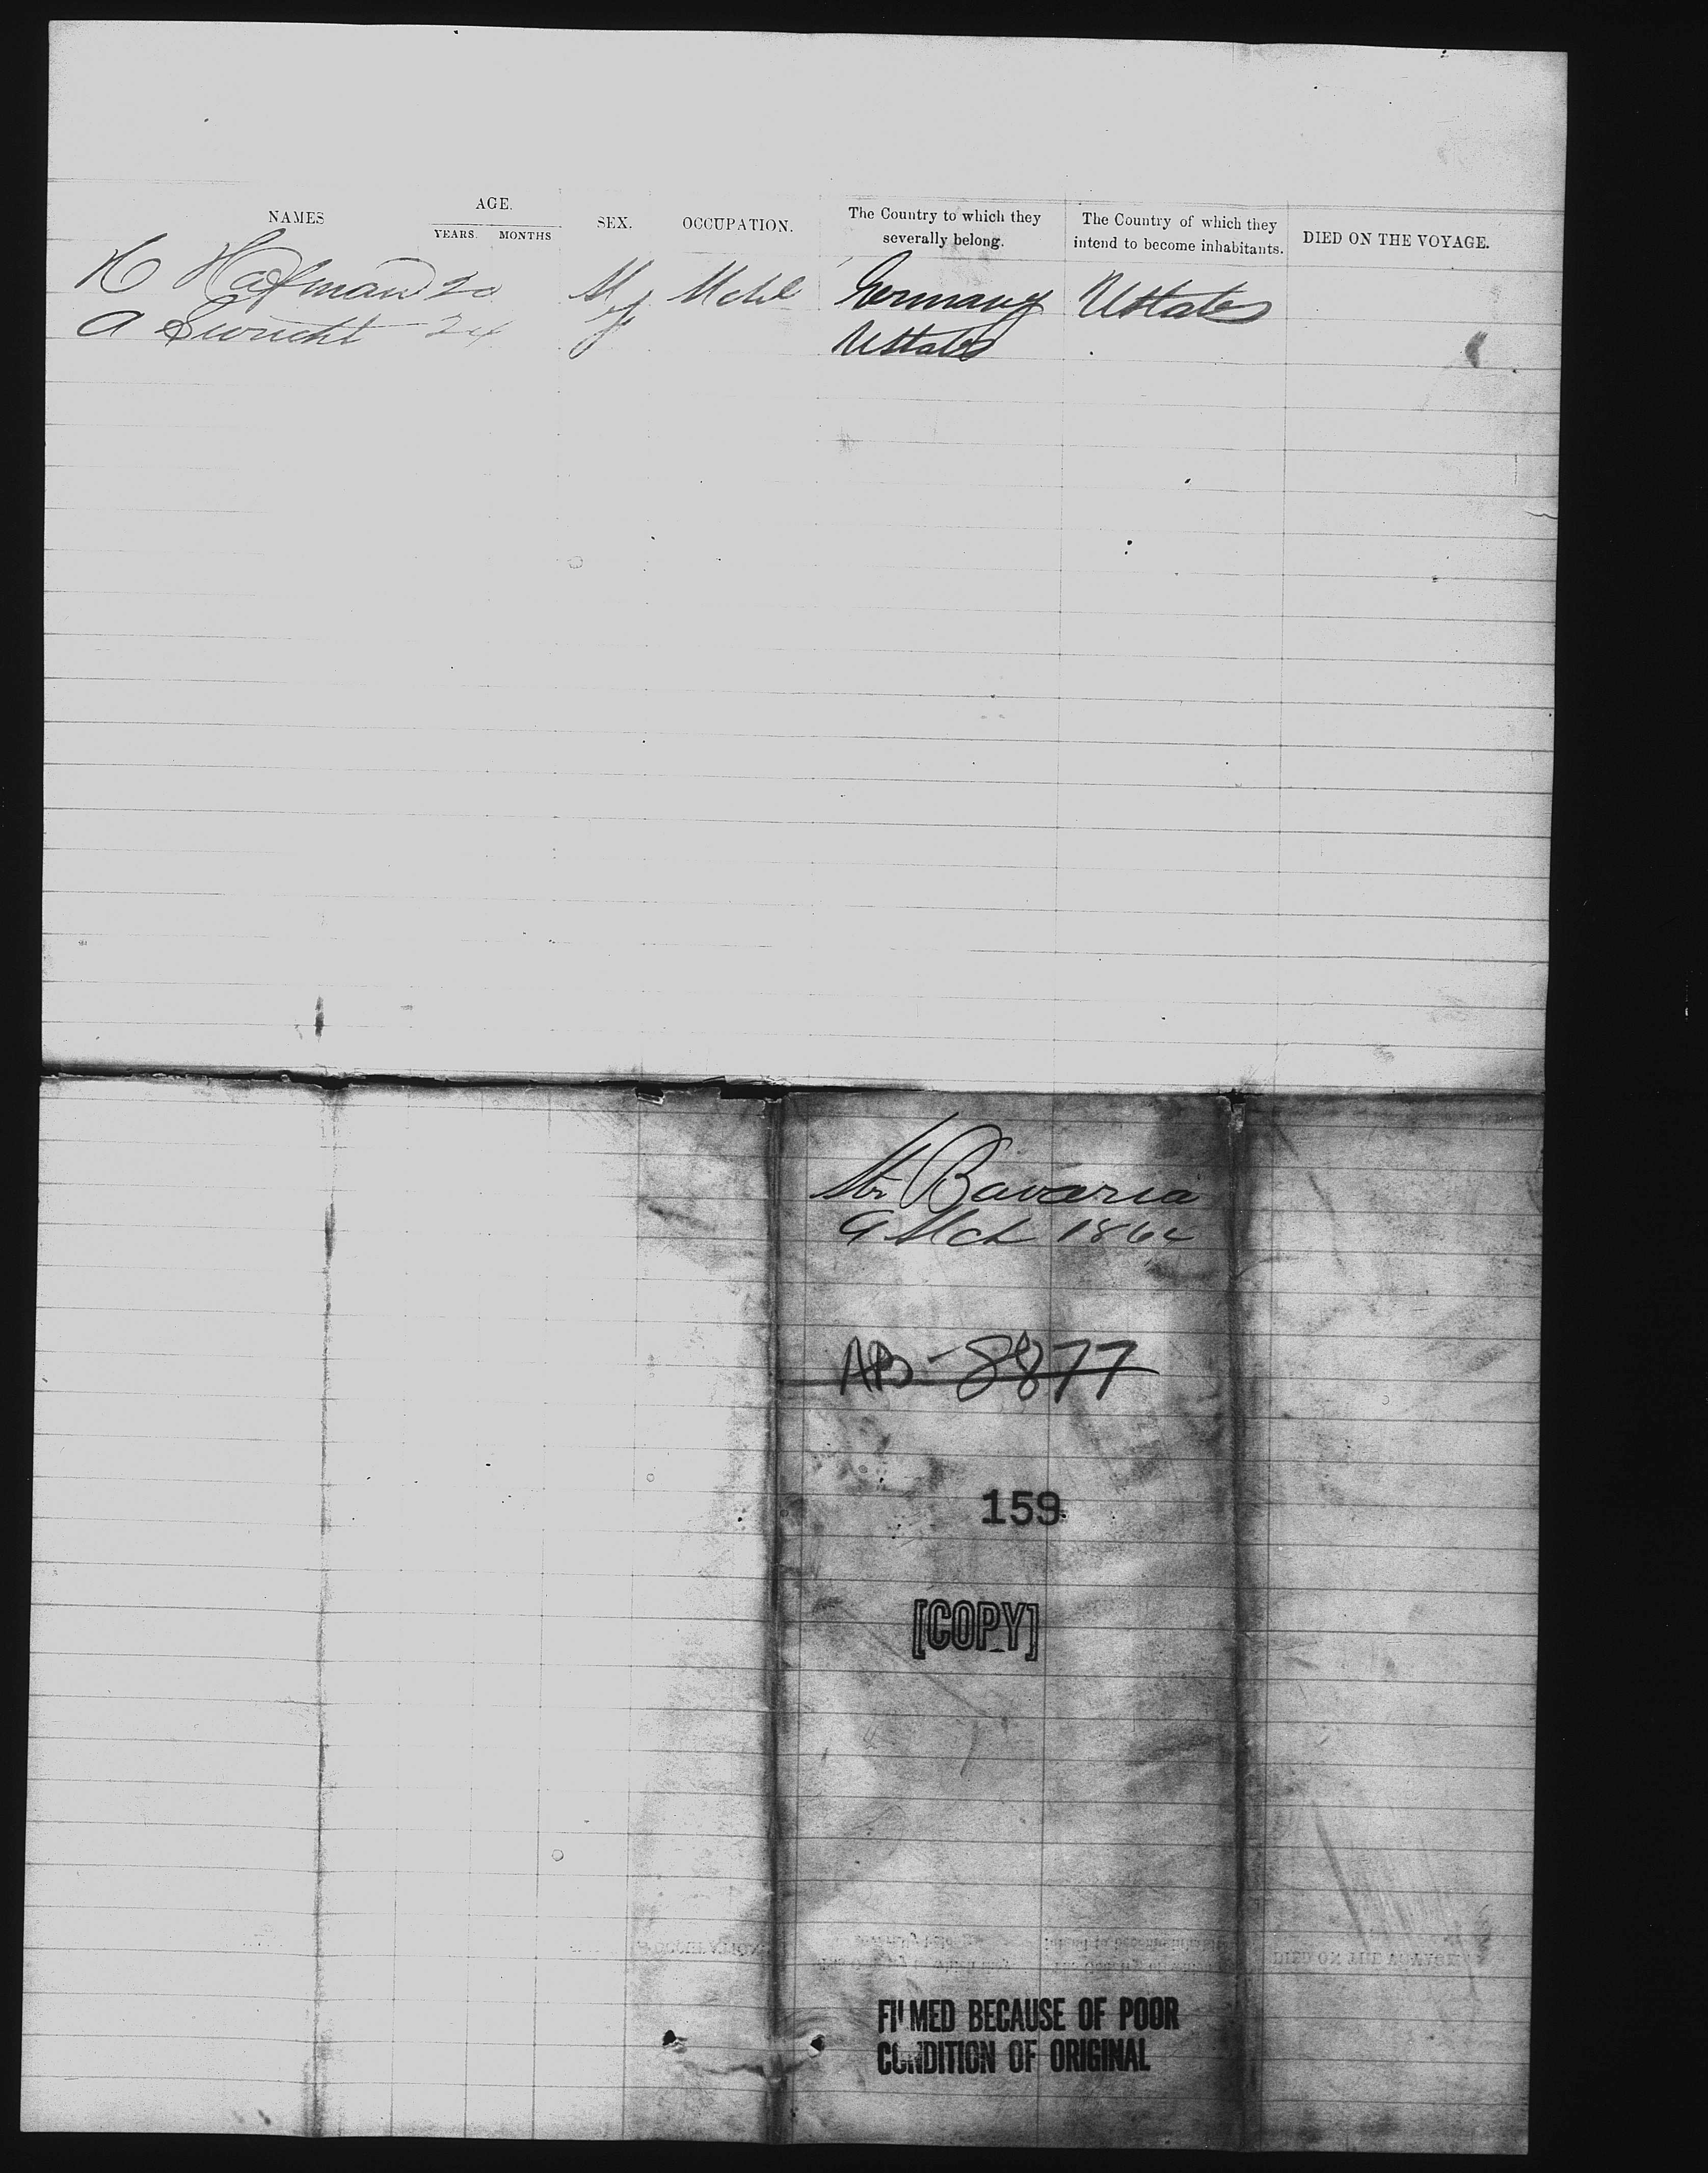 NAMES AGE. SEX. OCCUPATION. The Country to which they severally belong. The Country of which they intend to become inhabitants. DIED ON THE VOYAGE.
YEARS. MONTHS
H Hofman 20 M Germany UStates
A 24 f UStates
Str Bavaria
9 Mch 1864
159
[COPY]
FILMED BECAUSE OF POOR
CONDITION OF ORIGINAL